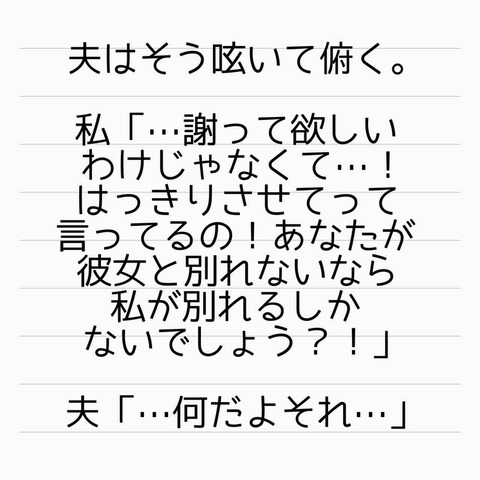 夫はそう呟いて俯く。
私「…謝って欲しい
わけじゃなくて…！
はっきりさせてって
言ってるの！あなたが
彼女と別れないなら
私が別れるしか
ないでしょう？！」
夫「…何だよそれ…」